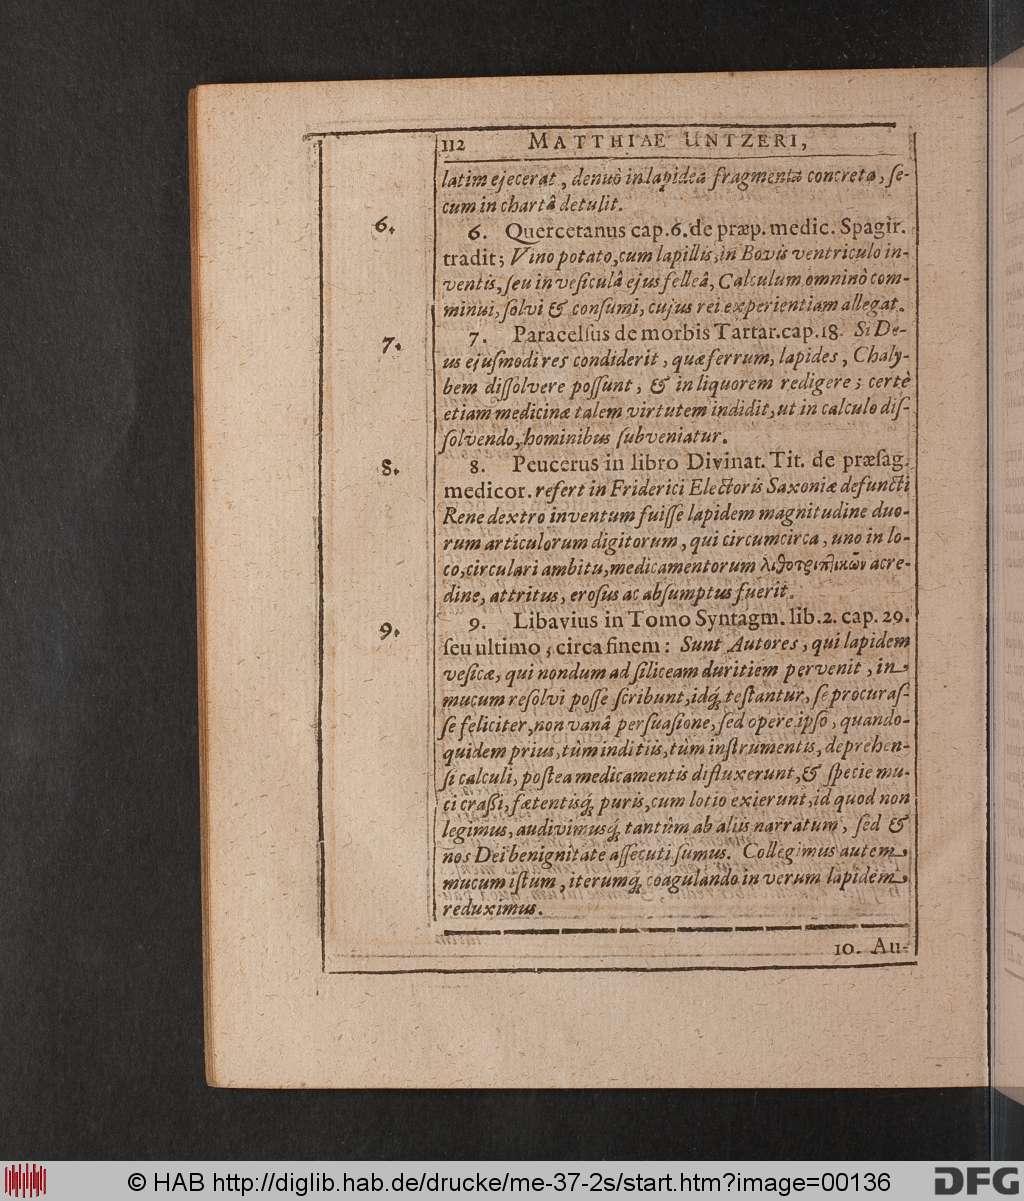 112 MATTHIAE UNTZERI,
latim ejecerat, denuò in lapidea fragmenta concreta, ſe-
cum in chartâ detulit.
6.
6. Quercetanus cap. 6. de præp. medic. Spagir.
tradit; Vino potato, cum lapillis, in Bovis ventriculo in-
ventis, ſeu in veſiculâ ejus felleâ, Calculum omninò com-
minui, ſolvi & conſumi, cujus rei experientiam allegat.
7.
7. Paracelſus de morbis Tartar. cap. 18. Si De-
us ejuſmodi res condiderit, quæ ferrum, lapides, Chaly-
bem diſſolvere poſſunt, & in liquorem redigere; certè
etiam medicinæ talem virtutem indidit, ut in calculo diſ-
ſolvendo, hominibus ſubveniatur.
8.
8. Peucerus in libro Divinat. Tit. de præſag.
medicor. refert in Friderici Electoris Saxoniæ defuncti
Rene dextro inventum fuiſſe lapidem magnitudine duo-
rum articulorum digitorum, qui circumcirca, uno in lo-
co, circulari ambitu, medicamentorum λιθοτριπλικῶν acre-
dine, attritus, eroſus ac abſumptus fuerit.
9.
9. Libavius in Tomo Syntagm. lib. 2. cap. 29.
ſeu ultimo, circa finem: Sunt Autores, qui lapidem
veſicæ, qui nondum ad ſiliceam duritiem pervenit, in
mucum reſolvi poſſe ſcribunt, idq́; teſtantur, ſe procuraſ-
ſe feliciter, non vanâ perſuaſione, ſed opere ipſo, quando-
quidem prius, tùm inditiis, tùm inſtrumentis, deprehen-
ſi calculi, poſtea medicamentis difluxerunt, & ſpecie mu-
ci craſſi, fætentisq́; puris, cum lotio exierunt, id quod non
legimus, audivimusq́; tantùm ab aliis narratum, ſed &
nos Dei benignitate aſſecuti ſumus. Collegimus autem
mucum iſtum, iterumq́; coagulando in verum lapidem
reduximus.
10. Au-
© HAB http://diglib.hab.de/drucke/me-37-2s/start.htm?image=00136
DFG